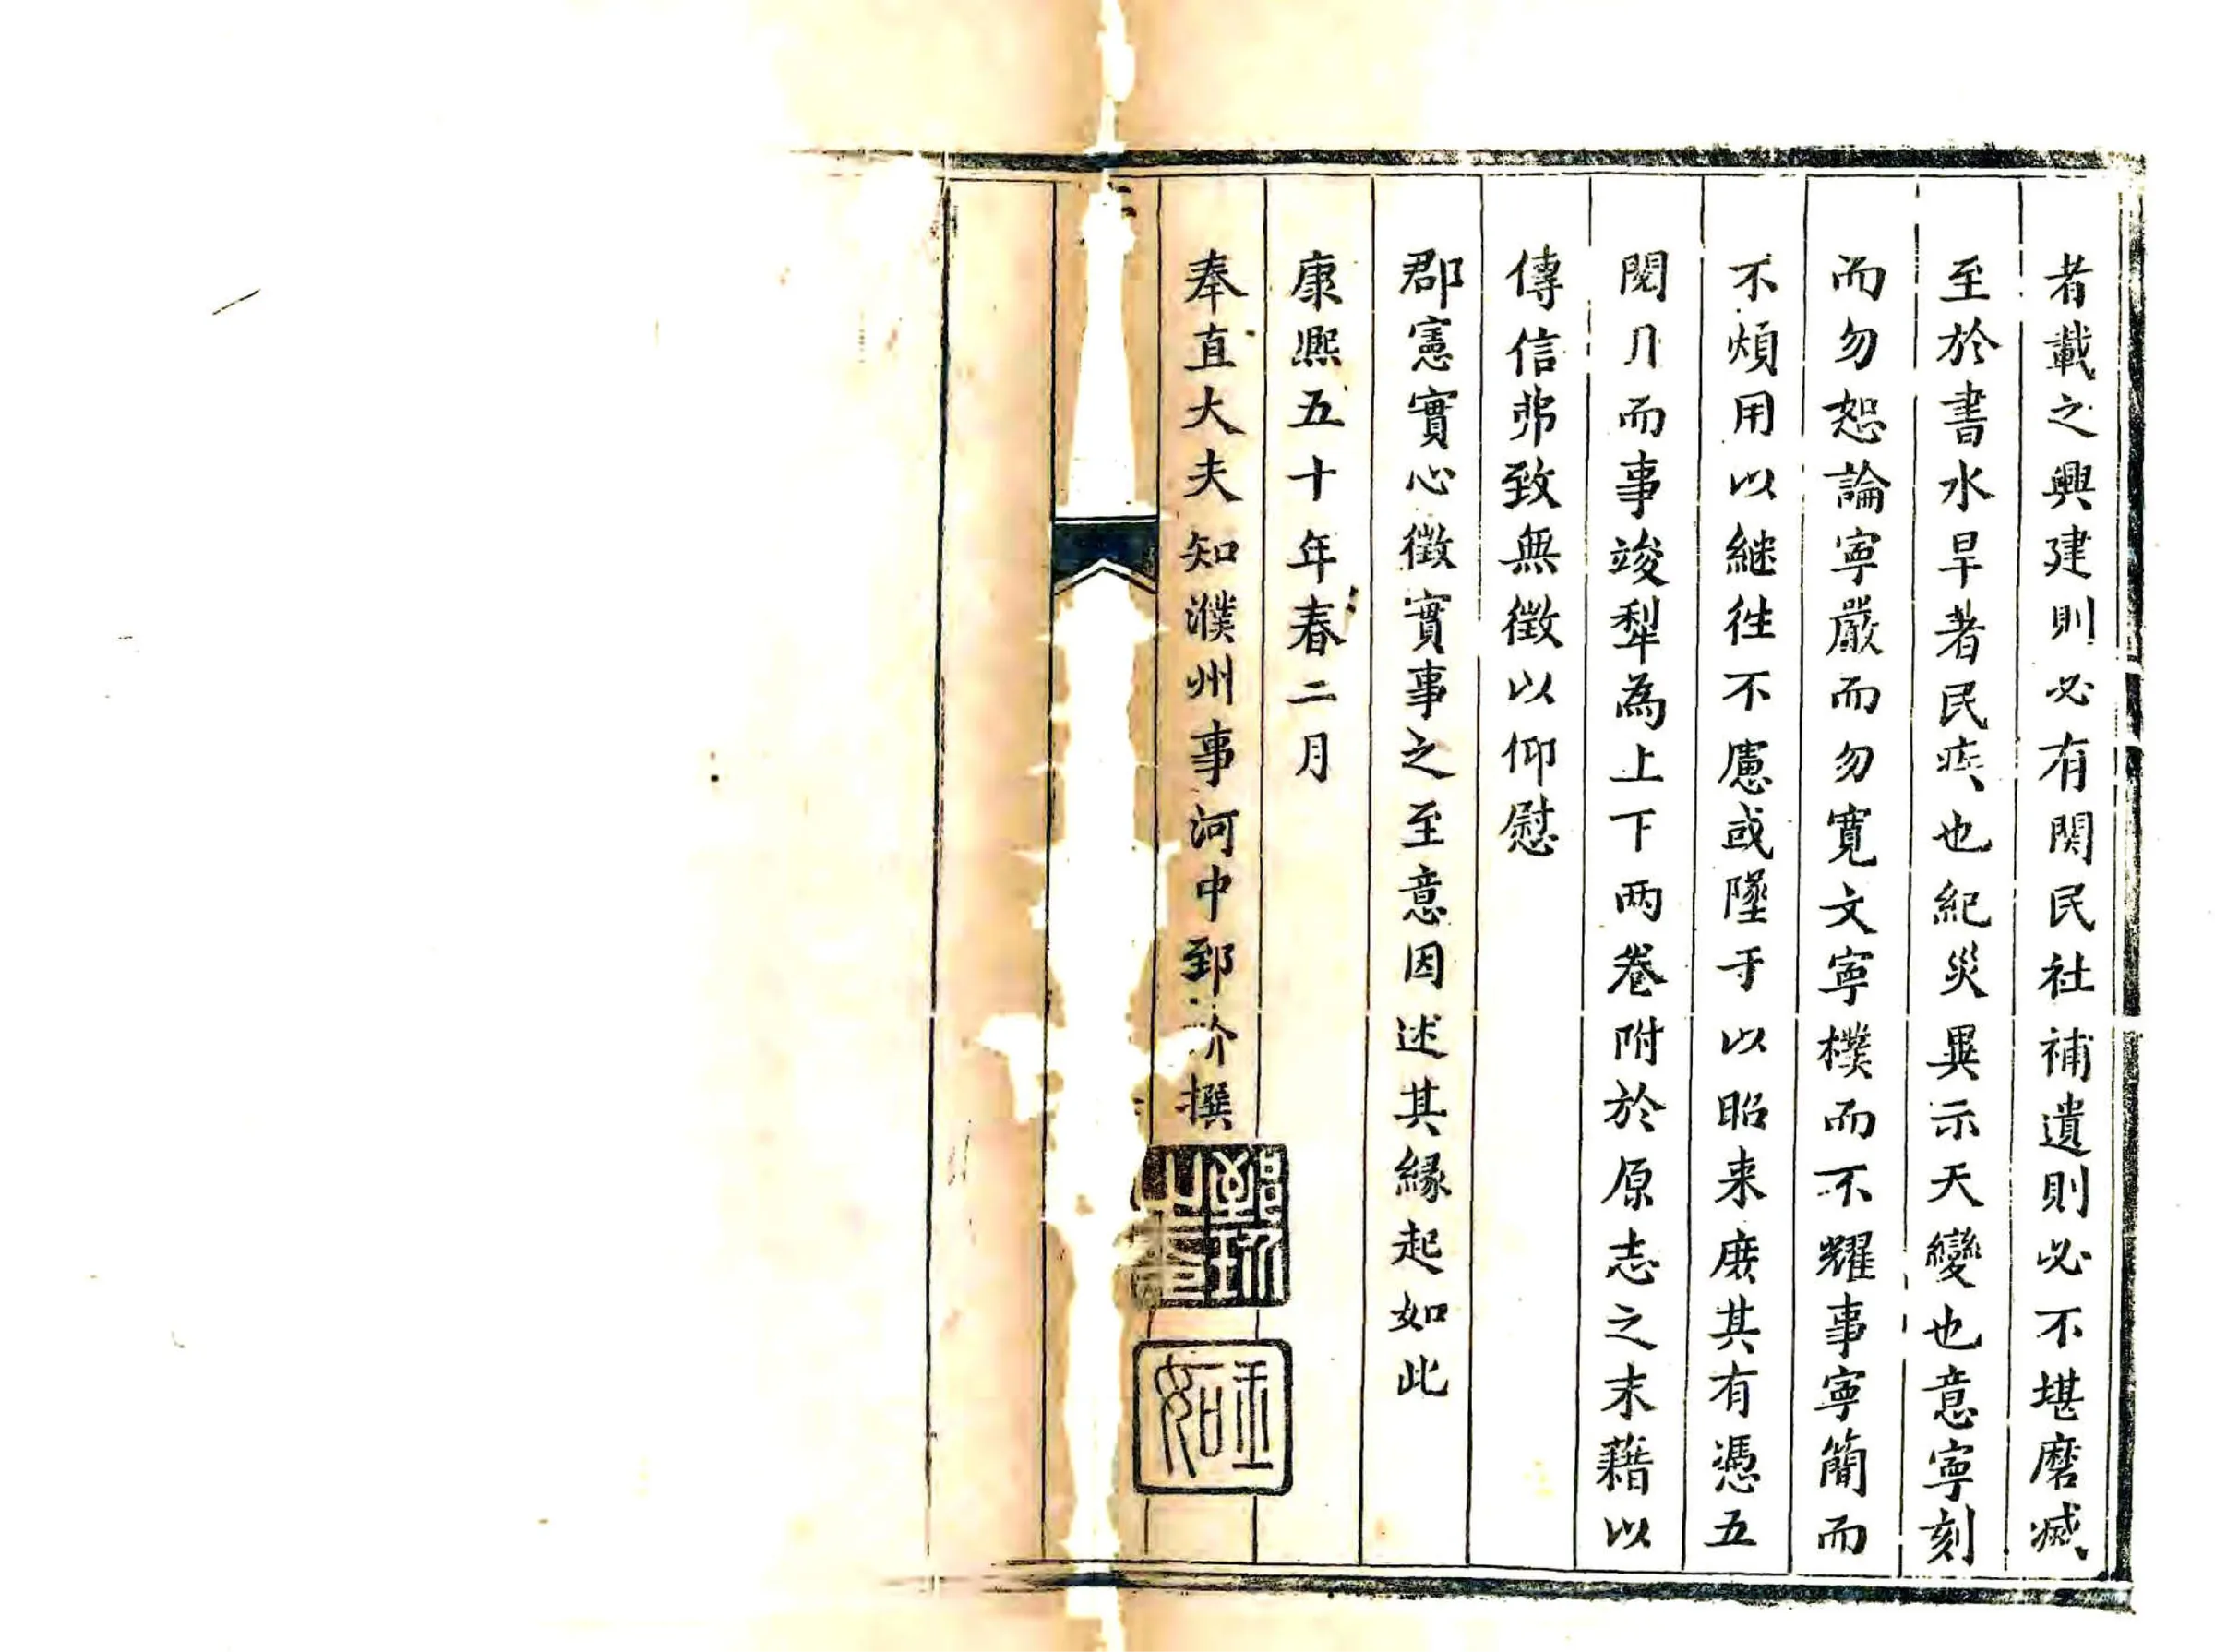 者載之興建則必有関民社補遺則必不堪磨滅
至於書水旱者民疾也紀災異示天變也意寧刻
而勿恕論寧嚴而勿寛文寧樸而不耀事寧簡而
不煩用以継徃不慮或墜于以昭来庻其有憑五
閱月而事竣犁為上下两卷附於原志之末藉以
傳信弗致無徵以仰慰
郡憲實心徵實事之至意因述其緣起如此
康熙五十年春二月
奉直大夫知濮州事河中郅 撰